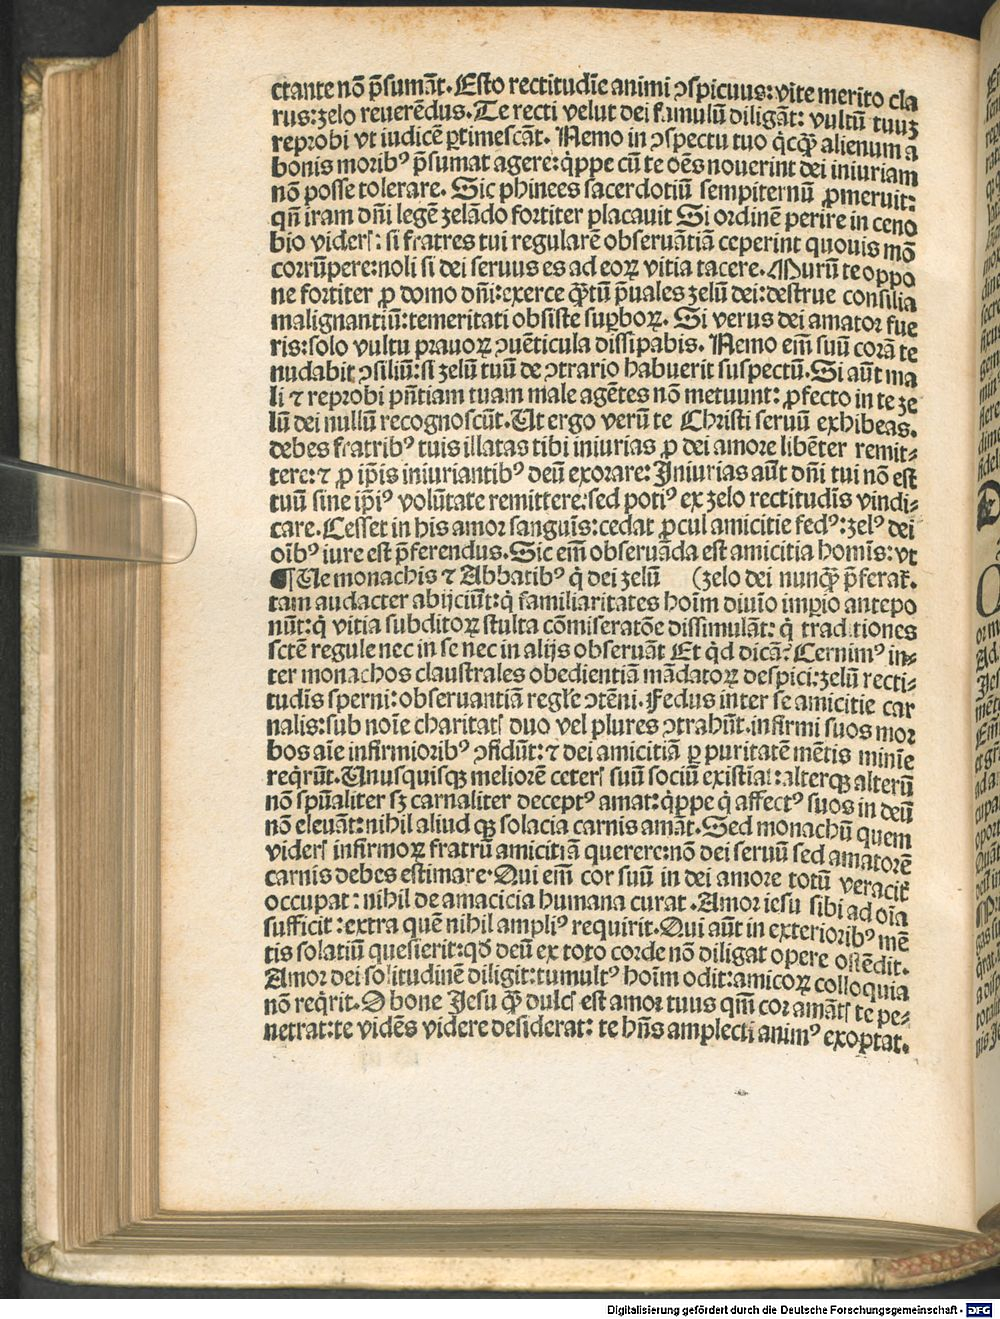 ctante nō p̄sumāt. Esto rectitudīe animi ↄspicuus: vite merito cla
rus: zelo reuerēdus. Te recti velut dei famulū diligāt: vultū tuuꝫ
reprobi vt iudicē ꝑtimescāt. Nemo in ↄspectu tuo q̇cqꝫ̄ alienum a
bonis moribꝰ p̄sumat agere: q̇ppe cū te oēs nouerint dei iniuriam
nō posse tolerare. Sic phinees sacerdotiū sempiternū ꝓmeruit:
qn̄ iram dn̄i legē zelādo fortiter placauit Si ordinē perire in ceno
bio viderꝭ: si fratres tui regularē obseruātiā ceperint quouis mō
corrūpere: noli si dei seruus es ad eoꝝ vitia tacere. Murū te oppo
ne fortiter ꝓ domo dn̄i: exerce qꝫ̄tū p̄uales zelū dei: destrue consilia
malignantiū: temeritati obsiste suꝑboꝝ. Si verus dei amator fue
ris: solo vultu prauoꝝ ↄuēticula dissipabis. Nemo em̄ suū corā te
nudabit ↄsiliū: si zelū tuū de ↄtrario habuerit suspectū. Si aūt ma
li ⁊ reprobi pn̄tiam tuam male agētes nō metuunt: ꝓfecto in te ze
lū dei nullū recognoscūt. Ut ergo verū te Christi seruū exhibeas.
debes fratribꝰ tuis illatas tibi iniurias ꝓ dei amore libēter remit⸗
tere: ⁊ ꝓ ip̄is iniuriantibꝰ deū exorare: Iniurias aūt dn̄i tui nō est
tuū sine ip̄iꝰ volūtate remittere: sed potiꝰ ex zelo rectitudīs vindi⸗
care. Cesset in his amor sanguīs: cedat ꝓcul amicitie fedꝰ: zelꝰ dei
oībꝰ iure est p̄ferendus. Sic em̄ obseruāda est amicitia homīs: vt
¶ Ue monachis ⁊ Abbatibꝰ q̇ dei zelū (zelo dei nunqꝫ̄ p̄feraꝶ.
tam audacter abijciūt: q̇ familiaritates hoīm diuīo imꝑio antepo
nūt: q̇ vitia subditoꝝ stulta cōmiseratōe dissimulāt: q̇ traditiones
sctē regule nec in se nec in alijs obseruāt Et qͥd dicā? Cernimꝰ in⸗
ter monachos claustrales obedientiā mādatoꝝ despici: zelū recti⸗
tudīs sperni: obseruantiā regľe ↄtēni. Fedus inter se amicitie car
nalis: sub noīe charitatꝭ duo vel plures ↄtrahūt. infirmi suos mor
bos aīe infirmioribꝰ ↄfidūt: ⁊ dei amicitiā ꝑ puritatē mētis minīe
req̇rūt. Unusquisqꝫ meliorē ceterꝭ suū sociū existiat: alterqꝫ alterū
nō spūaliter sꝫ carnaliter deceptꝰ amat: q̇ppe q̇ affectꝰ suos in deū
nō eleuāt: nihil aliud qꝫ solacia carnis amāt. Sed monachū quem
viderꝭ infirmoꝝ fratrū amicitiā querere: nō dei seruū sed amatorē
carnis debes estimare. Qui em̄ cor suū in dei amore totū veraciꝶ
occupat: nihil de amacicia humana curat. Amor iesu sibi ad oīa
sufficit: extra quē nihil ampliꝰ requirit. Qui aūt in exterioribꝰ mē
tis solatiū quesierit: qd̄ deū ex toto corde nō diligat opere ostēdit.
Amor dei solitudinē diligit: tumultꝰ hoīm odit: amicoꝝ colloquia
nō req̇rit. O bone Jesu qꝫ̄ dulcꝭ est amor tuus qm̄ cor amātꝭ te pe⸗
netrat: te vidēs videre desiderat: te hn̄s amplecti animꝰ exoptat.
Digitalisierung gefördert durch die Deutsche Forschungsgemeinschaft - DFG